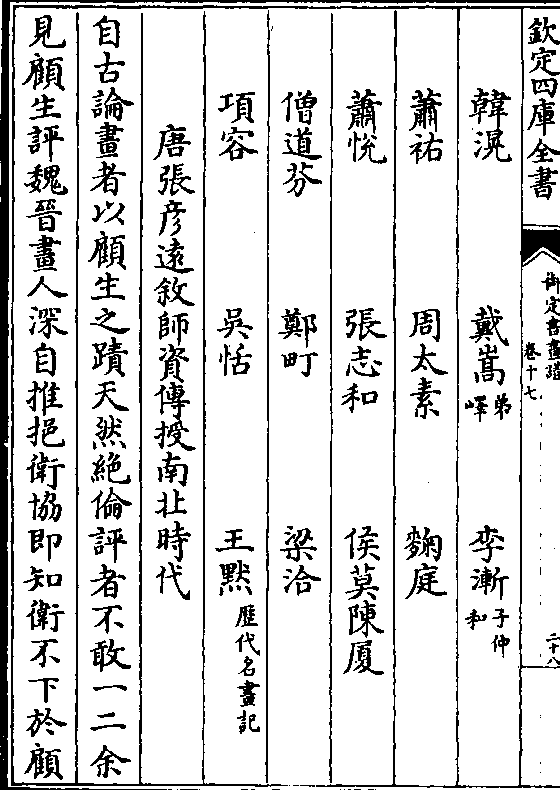 欽定四庫全書
御定書畫譜
卷十七
二十八
韓滉 戴嵩弟嶧 李漸子仲和
蕭祐 周太素 麴庭
蕭悅 張志和 侯莫陳厦
僧道芬 鄭町 梁洽
項容 吳恬 王默歷代名畫記
唐張彥遠敘師資傳授南北時代
自古論畫者以顧生之蹟天然絶倫評者不敢一二余
見顧生評魏晉畫人深自推挹衛協即知衛不下於顧